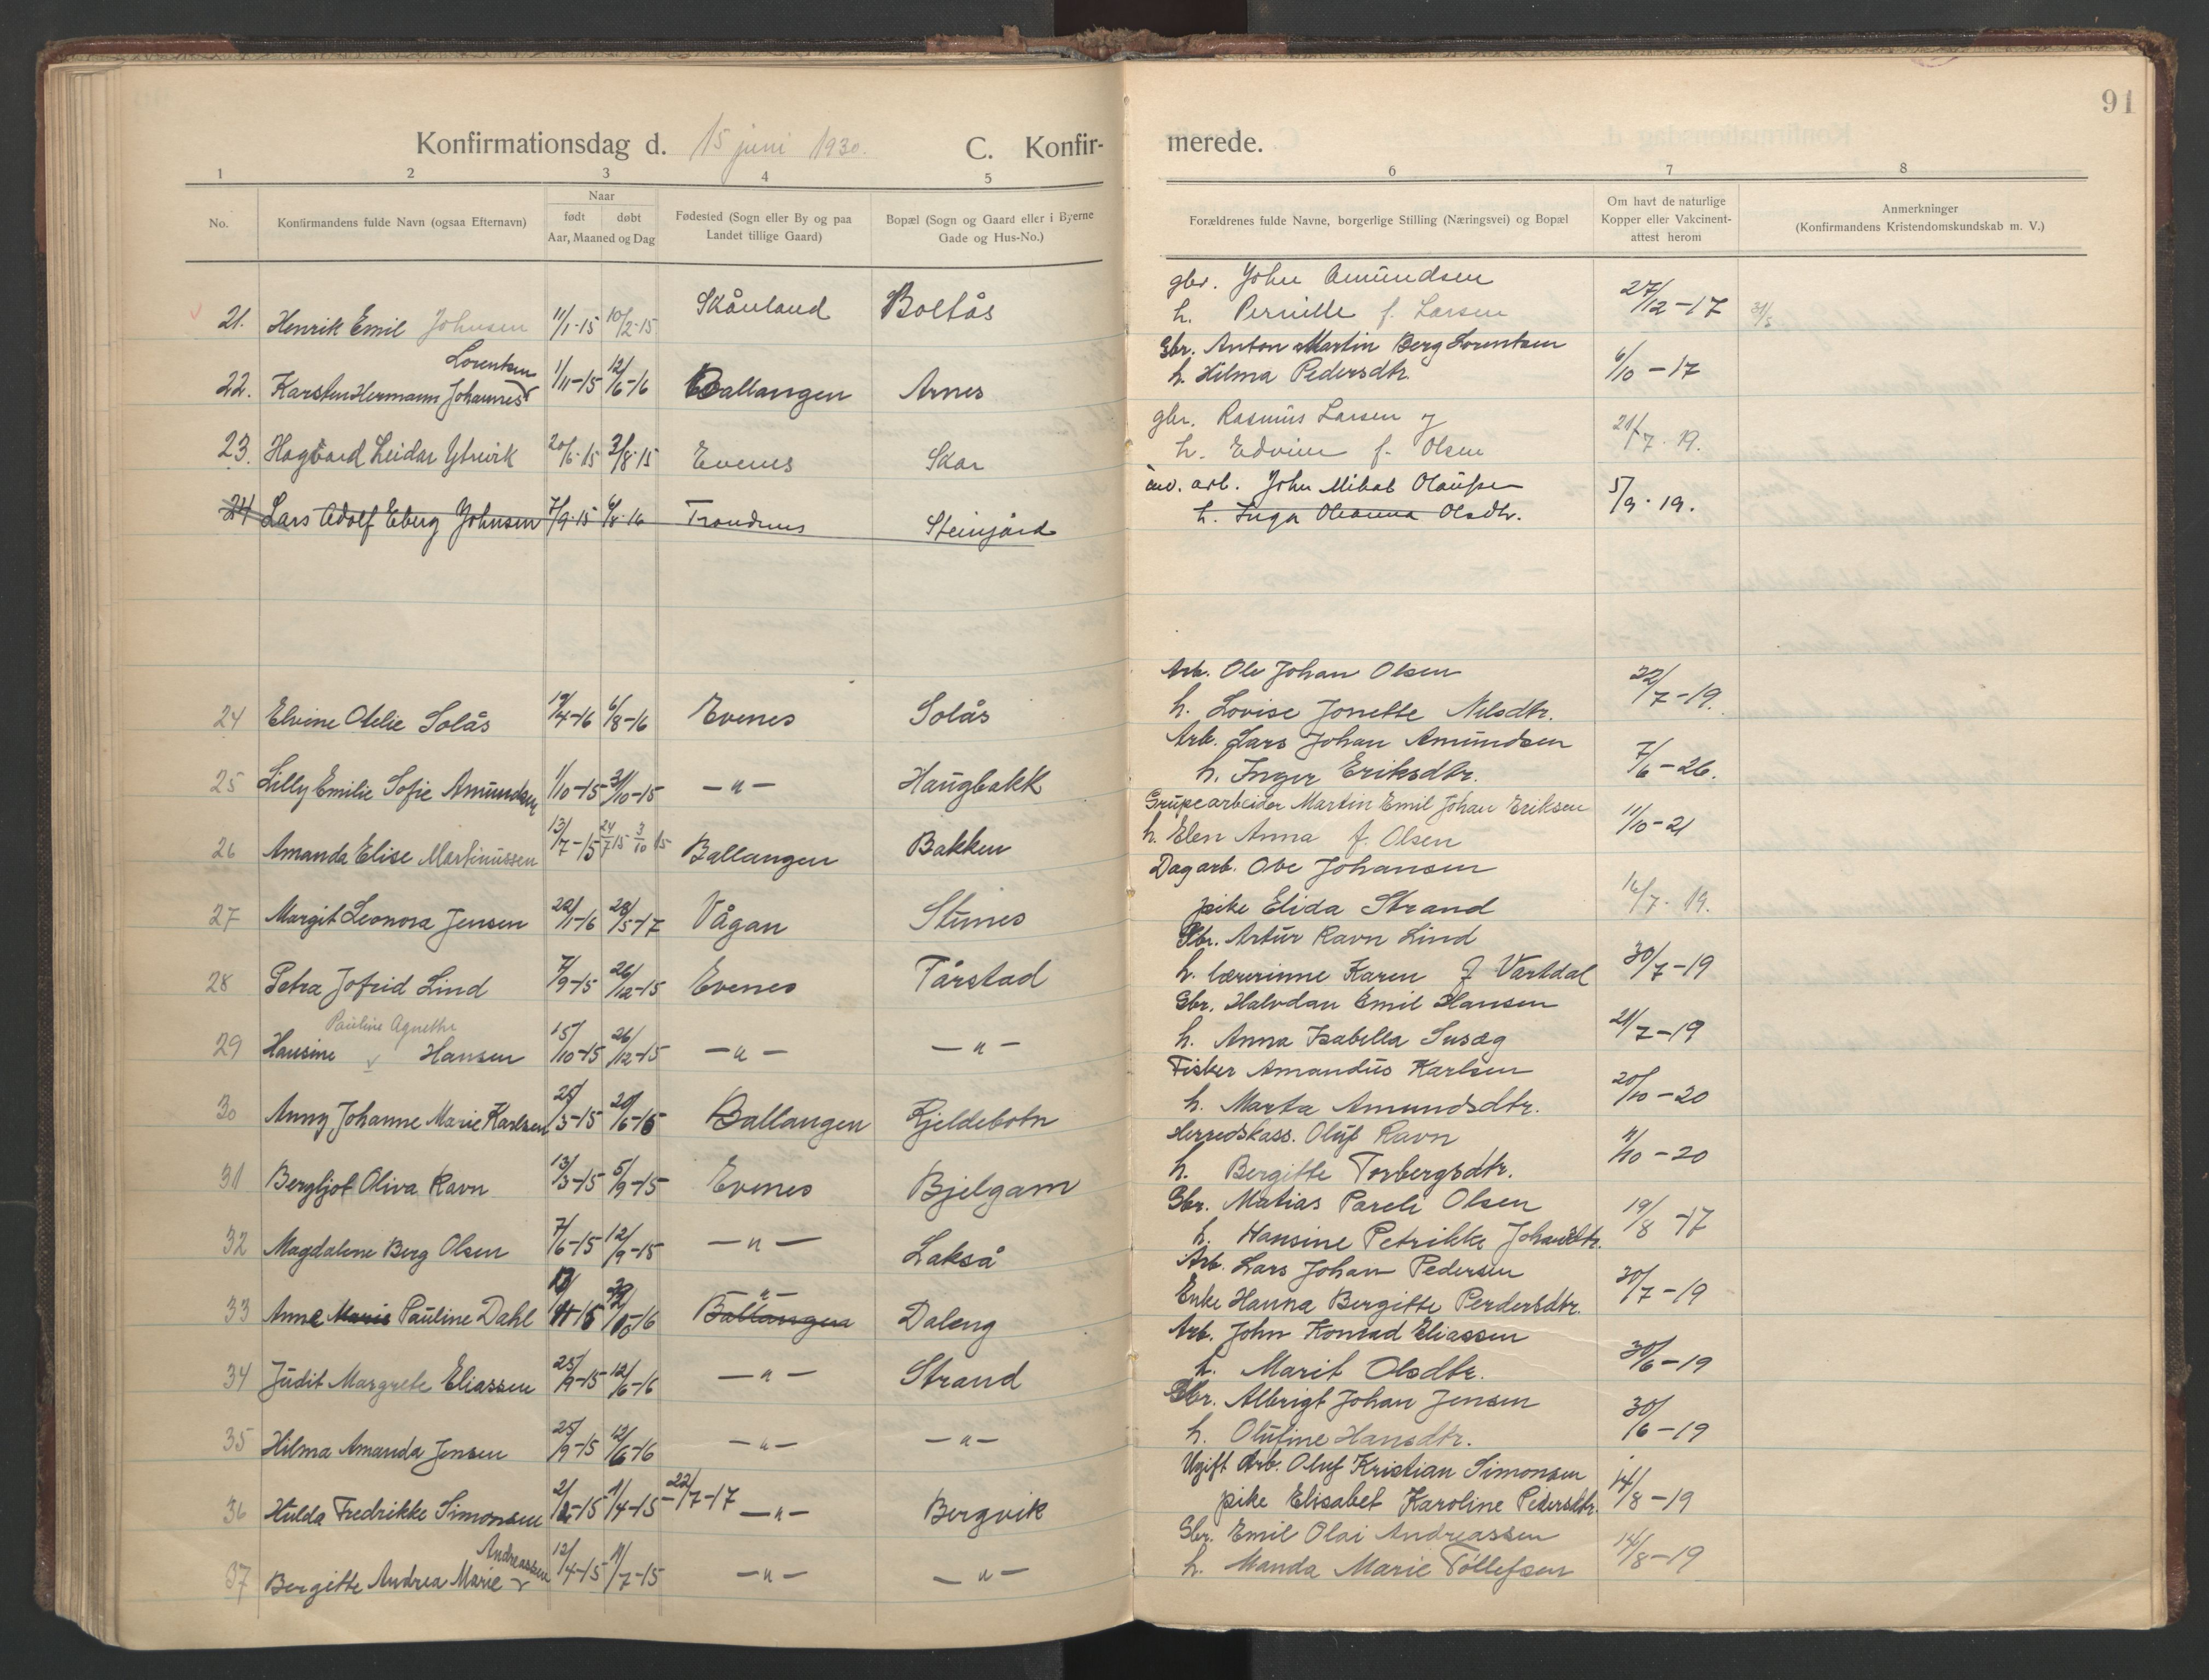 91
Konfirmationsdag d. 15 juni 1930. C. Konfir-merede.
1 2 3 4 5 6 7 8
No.
Konfirmandens fulde Navn (ogsaa Efternavn)
Naar
født døbt
Aar, Maaned og Dag
Fødested (Sogn eller By og paa
Landet tillige Gaard)
Bopæl (Sogn og Gaard eller i Byerne
Gade og Hus-No.)
Forældrenes fulde Navne, borgerlige Stilling (Næringsvei) og Bopæl
Om havt de naturlige
Kopper eller Vakcinent-
attest herom
Anmerkninger
(Konfirmandens Kristendomskundskab m. V.)
gbr. John Amundsen
21. Henrik Emil Johnsen 11/1-15 10/2-15 Skånland Boltås h. Pernille f. Larsen 27/12-17
Lorentsen Gbr. Anton Martin Berg Lorentsen
22. Karsten Hermann Johannes 1/11-15 12/6-16 Ballangen Arnes h. Hilma Pedersdtr. 6/10-17
gbr. Rasmus Larsen og
23. Hagbard Leidar Ytrevik 20/6-15 3/8-15 Evenes Skar h. Edvine f. Olsen 21/7-19.
arb. John Mikal Olaussen
24 Lars Adolf Eberg Johnsen 7/9-15 6/8-16 Trondenes Steinjord h. Inga Oleanna Olsdtr. 5/9-19.
Arb. Ole Johan Olsen
24 Elvine Otelie Solås 19/4-16 6/8-16 Evenes Solås h. Lovise Jonette Nilsdtr. 22/7-19.
Arb. Lars Johan Amundsen
25 Lilly Emilie Sofie Amundsen 1/10-15 31/10-15 -"- Haugbakk h. Inger Eriksdtr. 7/6-26.
Grupearbeider Martin Emil Johan Eriksen
26 Amanda Elise Martinussen 13/7-15 24/7 15 3/10 15 Ballangen Bakken h. Elen Anna f. Olsen 11/10-21
Dagarb. Ove Johansen
27 Margit Leonora Jensen 22/1-16 28/5-17 Vågan Stunes pike Elida Strand 16/7-19.
Gbr. Artur Ravn Lind
28 Petra Jofrid Lind 7/9-15 26/12-15 Evenes Tårstad h. lærerinne Karen f Vartdal 30/7-19
Pauline Agnethe Gbr. Halvdan Emil Hansen
29 Hansine Hansen 15/10-15 26/12-15 -"- -"- h. Anna Isabella Susæg 21/7-19
Fisker Amandus Karlsen
30 Anny Johanne Marie Karlsen 25/3-15 20/6-15 Ballangen Kjeldebotn h. Marta Amundsdtr. 20/10-20
Herredskass. Oluf Ravn
31 Bergljot Oliva Ravn 13/3-15 5/9-15 Evenes Bjelgam h. Bergitte Torbergsdtr. 11/10-20
Gbr. Matias Pareli Olsen
32 Magdalene Berg Olsen 7/6-15 12/9-15 -"- Lakså h. Hansine Petrikke Johansdtr. 19/8-17
-"- Arb. Lars Johan Pedersen
33 Anne Marie Pauline Dahl Ballangen Daleng Enke Hanna Bergitte Perdersdtr. 30/7-19
Arb. John Konrad Eliassen
34 Judit Margrete Eliassen 25/9-15 12/6-16 -"- Strand h. Marit Olsdtr. 30/6-19
Gbr. Albrigt Johan Jensen
35 Hilma Amanda Jensen 25/9-15 12/6-16 -"- -"- h. Olufine Hansdtr. 30/6-19
Ugift Arb. Oluf Kristian Simonsen
36 Hulda Fredrikke Simonsen 1/4-15 -22/7-17 -"- Bergvik pike Elisabet Karoline Pedersdtr. 14/8-19
Andreassen Gbr. Emil Olai Andreassen
37 Bergitte Andrea Marie 12/4-15 11/7-15 -"- -"- h. Manda Marie Tollefsen 14/8-19